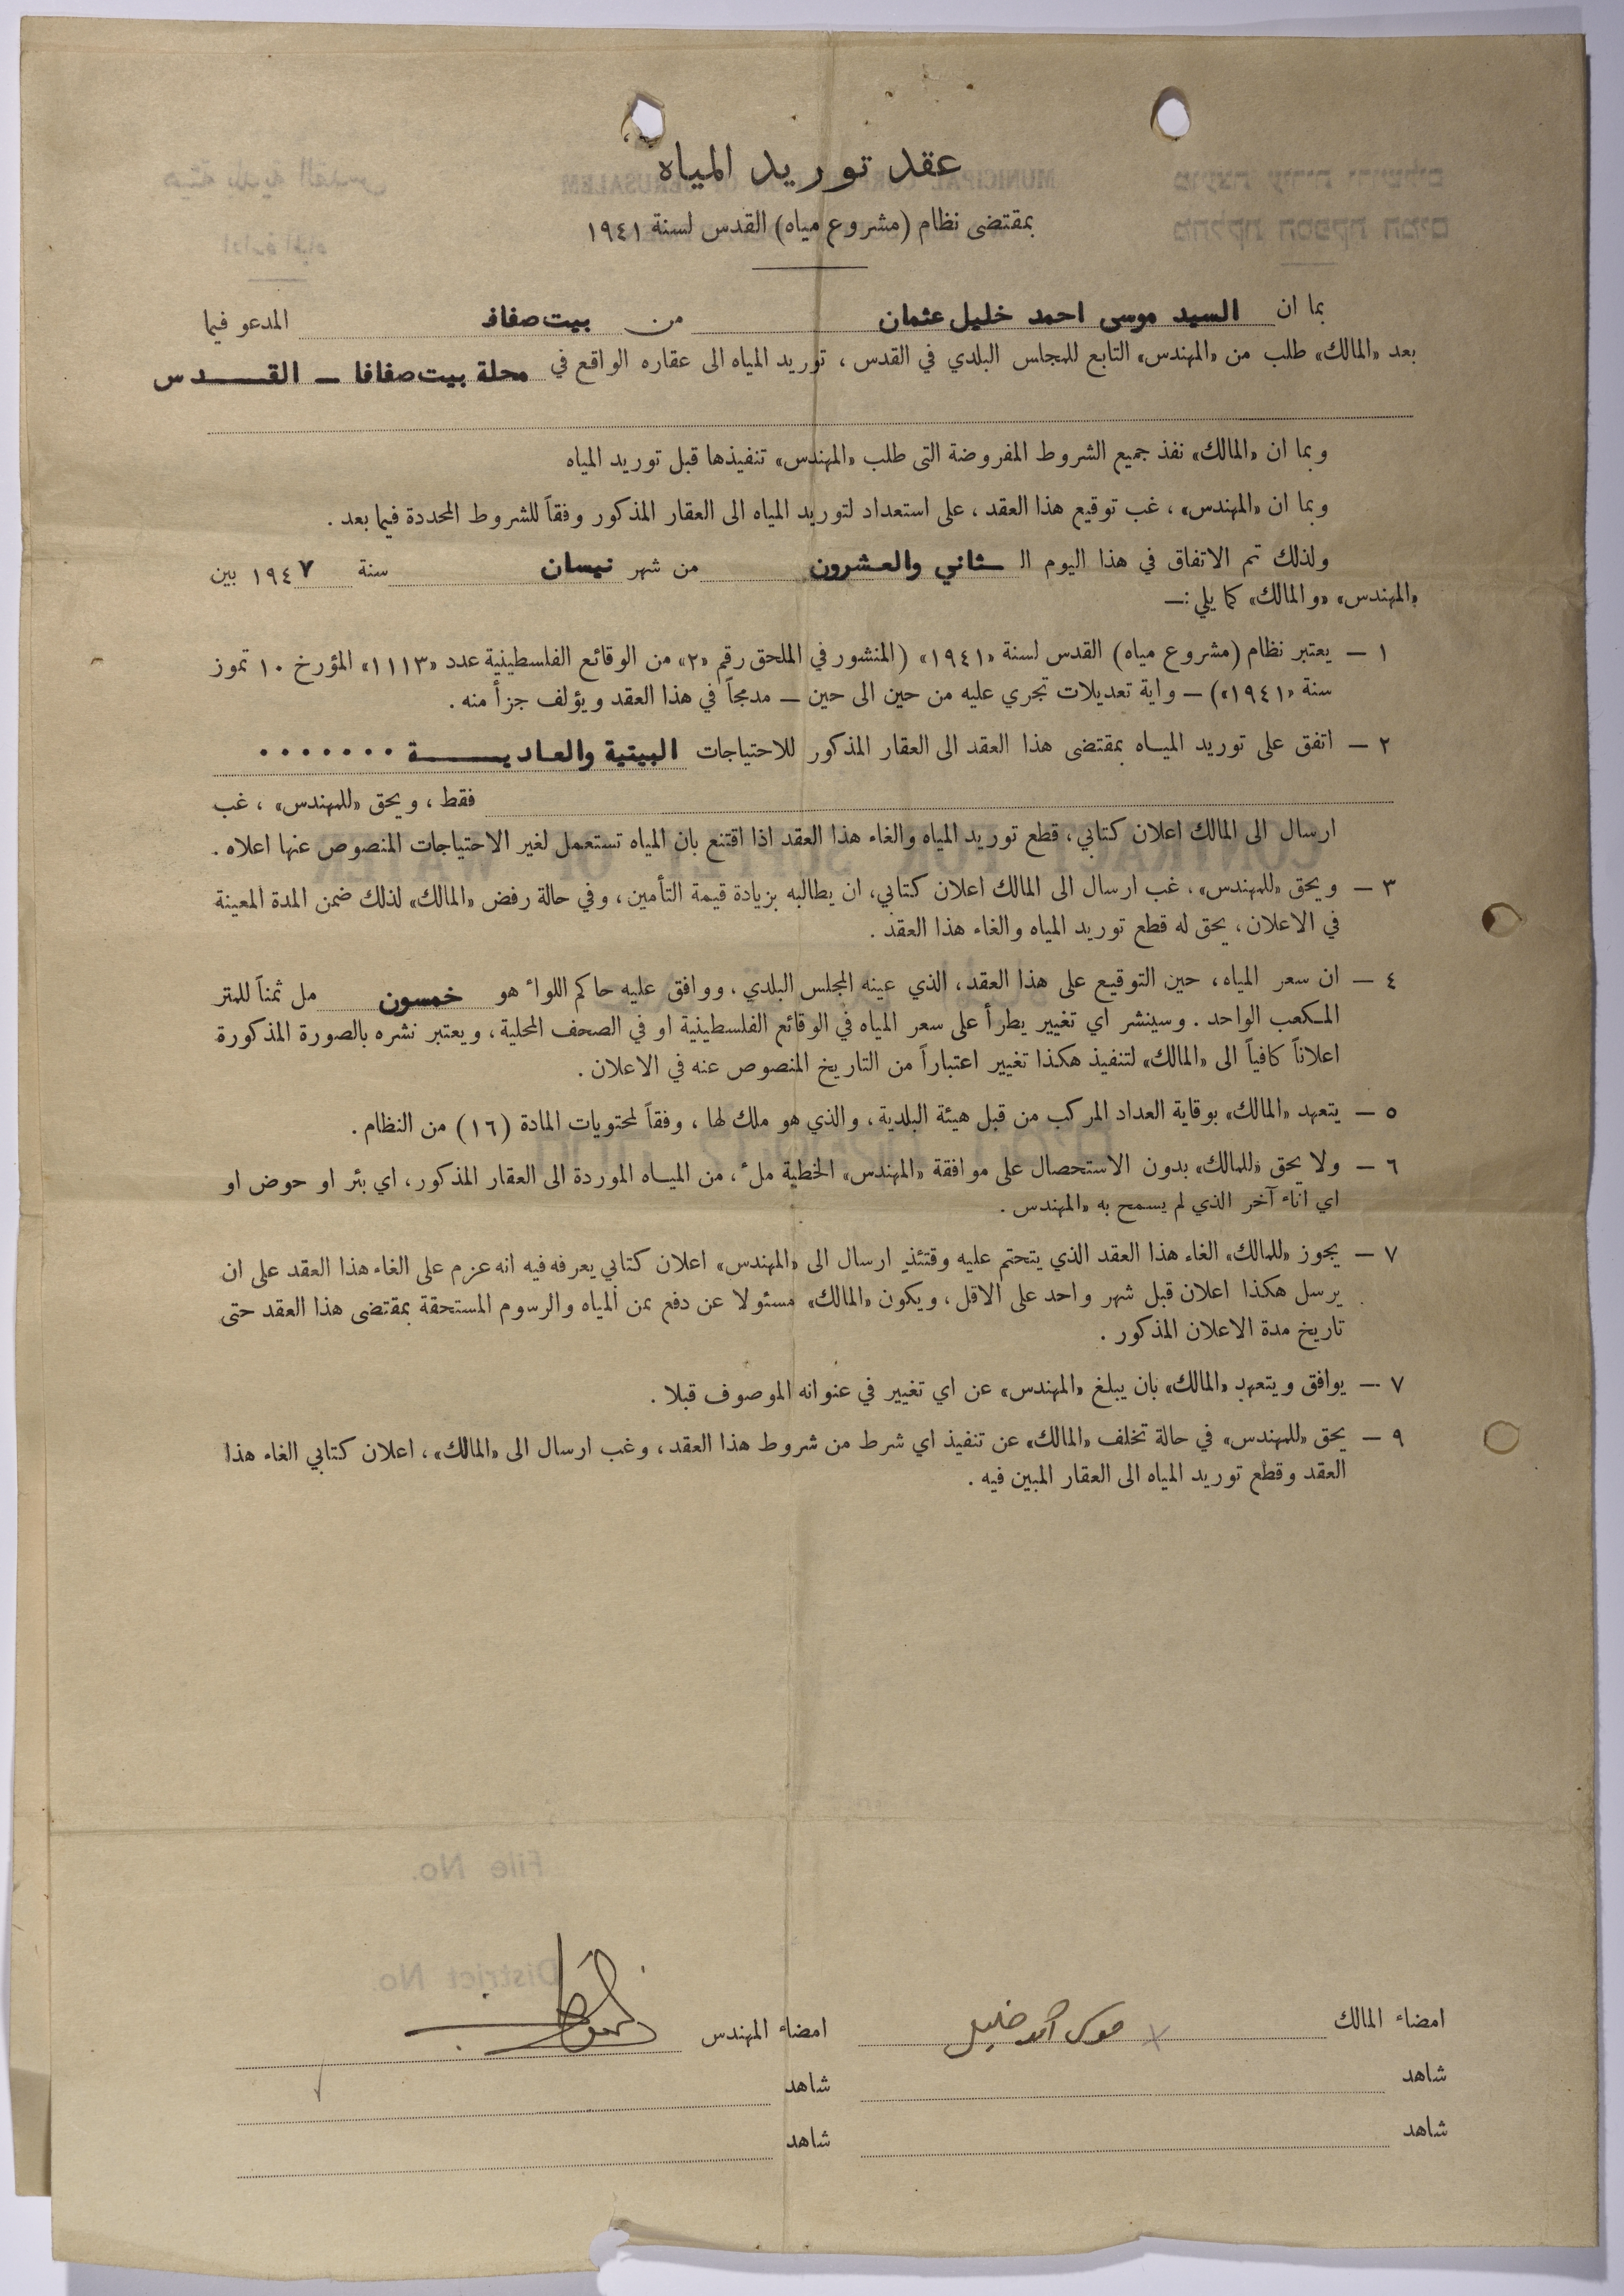 عقد توريد المياه
بمقتضى نظام (مشروع مياه) القدس لسنة ١٩٤١
بما ان السيد موسى احمد خليل عثمان من بيت صفافا المدعو فيما
بعد «المالك» طلب من «المهندس» التابع للمجلس البلدي في القدس ، توريد المياه الى عقاره الواقع في محلة بيت صفافا ــ القـــدس
وبما ان «المالك» نفذ جميع الشروط المفروضة التى طلب «المهندس» تنفيذها قبل توريد المياه
وبما ان «المهندس» ، غب توقيع هذا العقد ، على استعداد لتوريد المياه الى العقار المذكور وفقاً للشروط المحددة فيما بعد .
ولذلك تم الاتفاق في هذا اليوم الـ ـثاني والعشرون من شهر نيسان سنة ١٩٤٧ بين
«المهندس» «والمالك» كما يلي :ــ
١ ــ يعتبر نظام (مشروع مياه) القدس لسنة «١٩٤١» (المنشور في الملحق رقم «٢» من الوقائع الفلسطينية عدد «١١١٣» المؤرخ ١٠ تموز
سنة «١٩٤١») ــ واية تعديلات تجري عليه من حين الى حين ــ مدمجاً في هذا العقد ويؤلف جزأ منه .
٢ ــ اتفق على توريد الميـاه بمقتضى هذا العقد الى العقار المذكور للاحتياجات البيتية والعاديـــــة . . . . . . .
فقط ، ويحق «للمهندس» ، غب
ارسال الى المالك اعلان كتابي ، قطع توريد المياه والغاء هذا العقد اذا اقتنع بان المياه تستعمل لغير الاحتياجات المنصوص عنها اعلاه .
٣ ــ ويحق «للمهندس» ، غب ارسال الى المالك اعلان كتابي ، ان يطالبه بزيادة قيمة التأمين ، وفي حالة رفض «المالك» لذلك ضمن المدة المعينة
في الاعلان ، يحق له قطع توريد المياه والغاء هذا العقد .
٤ ــ ان سعر المياه ، حين التوقيع على هذا العقد ، الذي عينه المجلس البلدي ، ووافق عليه حاكم اللواء هو خمسون مل ثمناً للمتر
المـكعب الواحد . وسينشر اي تغيير يطرأ على سعر المياه في الوقائع الفلسطينية او في الصحف المحلية ، ويعتبر نشره بالصورة المذكورة
اعلاناً كافياً الى «المالك» لتنفيذ هكذا تغيير اعتباراً من التاريخ المنصوص عنه في الاعلان .
٥ ــ يتعهد «المالك» بوقاية العداد المركب من قبل هيئة البلدية ، والذي هو ملك لها ، وفقاً لمحتويات المادة (١٦) من النظام .
٦ ــ ولا يحق «للمالك» بدون الاستحصال على موافقة «المهندس» الخطية ملء ، من الميـاه الموردة الى العقار المذكور ، اي بئر او حوض او
اي اناء آخر الذي لم يسمح به «المهندس .
٧ ــ يجوز «للمالك» الغاء هذا العقد الذي يتحتم عليه وقتئذٍ ارسال الى «المهندس» اعلان كتابي يعرفه فيه انه عزم على الغاء هذا العقد على ان
يرسل هكذا اعلان قبل شهر واحد على الاقل ، ويكون «المالك» مسئولا عن دفع ثمن المياه والرسوم المستحقة بمقتضى هذا العقد حتى
تاريخ مدة الاعلان المذكور .
٧ ــ يوافق ويتعهد «المالك» بان يبلغ «المهندس» عن اي تغيير في عنوانه الموصوف قبلا .
٩ ــ يحق «للمهندس» في حالة تخلف «المالك» عن تنفيذ اي شرط من شروط هذا العقد ، وغب ارسال الى «المالك» ، اعلان كتابي الغاء هذا
العقد وقطع توريد المياه الى العقار المبين فيه .
امضاء المالك موسى احمد خليل امضاء المهندس
شاهد شاهد
شاهد شاهد